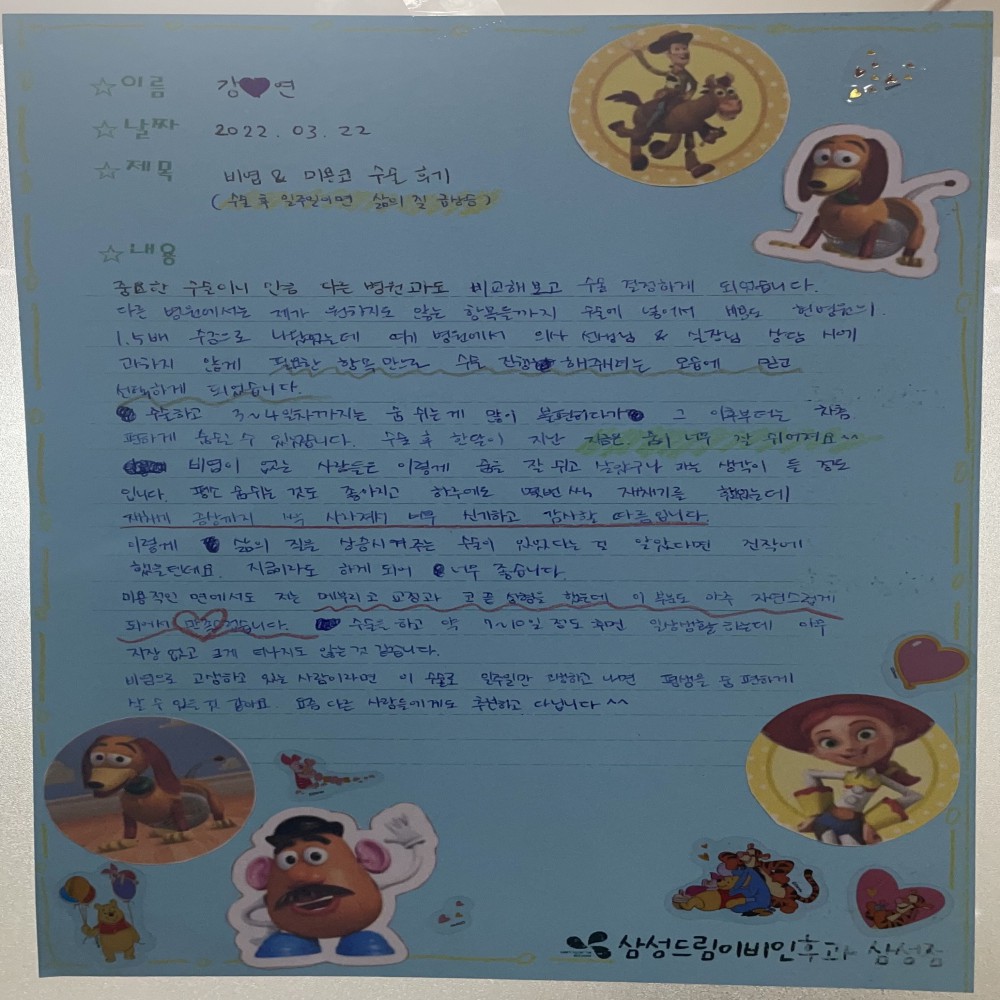 ☆이름 강♥연
☆날짜 2022.03.22
☆제목 비염 & 미용코 수술 후기
(수술 후 일주일이면 삶의 질 급상승)
☆내용
중요한 수술이니 만큼 다른 병원과도 비교해보고 수술 결정하게 되었습니다.
다른 병원에서는 제가 원하지도 않는 항목들까지 수술에 넣어서 비용도 현병원의
1.5배 수준으로 나왔었는데 여기 병원에서 의사 선생님 & 실장님 상담 시에
과하지 않게 필요한 항목만으로 수술 진행 해주려는 모습에 믿고
선택하게 되었습니다.
수술하고 3~4일차까지는 숨 쉬는게 많이 불편하다가 그 이후부터는 차츰
편하게 숨쉴 수 있었습니다. 수술 후 한달이 지난 지금은 숨이 너무 잘 쉬어져요^^
비염이 없는 사람들은 이렇게 숨을 잘 쉬고 살았구나 라는 생각이 들 정도
입니다. 평소 숨쉬는 것도 좋아지고 하루에도 몇번씩 재채기를 했었는데
재채기 증상까지 싹 사라져서 너무 신기하고 감사할 따름입니다.
이렇게 삶의 질을 상승시켜주는 수술이 있었다는 걸 알았다면 진작에
했을텐데요. 지금이라도 하게 되어 너무 좋습니다.
미용적인 면에서도 저는 매부리코 교정과 코 끝 성형을 했는데 이 부분도 아주 자연스럽게
되어서 만족스럽습니다. 수술을 하고 약 7~10일 정도 후면 일상생활 하는데 아무
지장 없고 크게 티나지도 않는 것 같습니다.
비염으로 고생하고 있는 사람이라면 이 수술로 일주일만 고생하고 나면 평생을 숨 편하게
살 수 있을 것 같아요. 요즘 다른 사람들에게도 추천하고 다닙니다^^
삼성드림이비인후과 삼성점